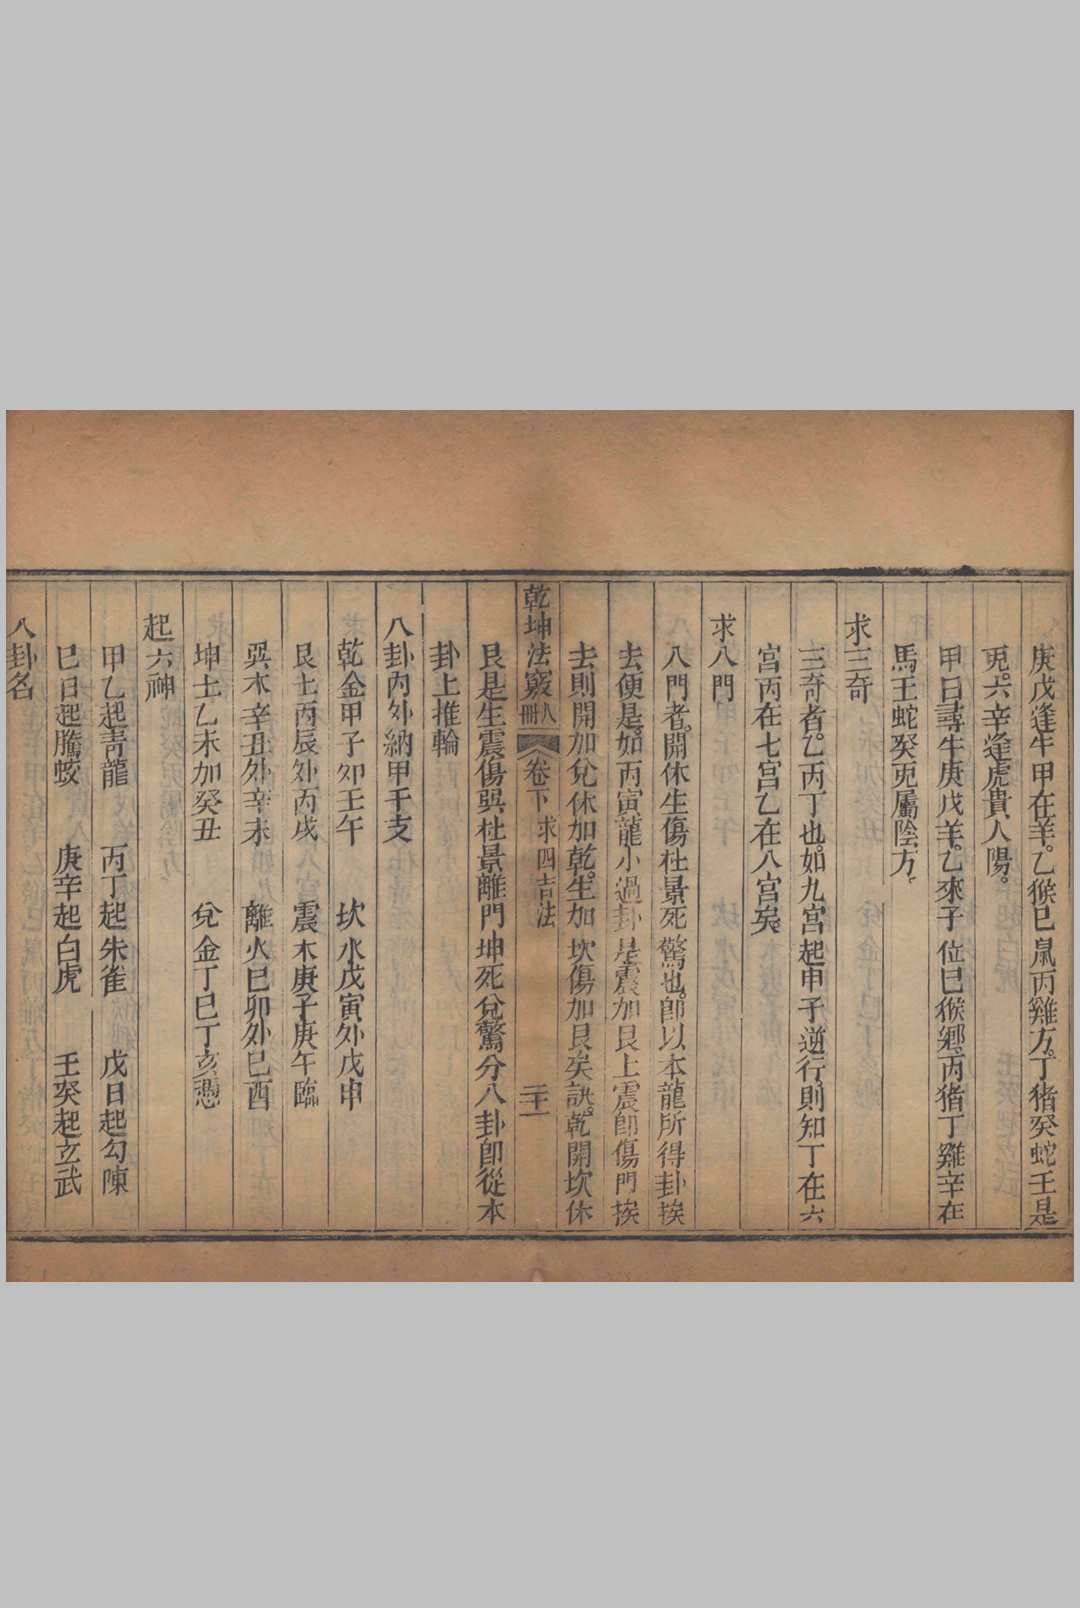 庚戊逢牛甲在羊。乙猴巳鼠丙雞方。丁猪癸蛇壬是
兎。六辛逢虎貴人陽。
甲日尋牛庚戊羊。乙來子位巳猴鄉。丙猪丁雞辛在
馬王蛇癸兎屬陰方。
求三奇
三奇者。乙丙丁也。如九宮起甲子逆行。則知丁在六
宮丙在七宮乙在八宮矣。
求八門
八門者。開休生傷杜景死驚也。卽以本龍所得卦挨
去便是。如丙寅龍小過卦是震加艮上震卽傷門挨
去則開加兌休加乾。生加坎傷加艮矣訣。乾開坎休
乾坤法竅 八冊 卷下 求四吉法 三十一
艮是生震傷巽杜景離門坤死兌驚分八卦卽從本
卦上推輪
八卦內外納甲干支
乾金甲子外壬午 坎水戊寅外戊申
艮土丙辰外丙戌 震木庚子庚午臨
巽木辛丑外辛未 離火巳卯外巳酉
坤土乙未加癸丑 兌金丁巳丁亥憑
起六神
甲乙起青龍 丙丁起朱雀 戊日起勾陳
巳日起騰蛟 庚辛起白虎 壬癸起玄武
八卦名